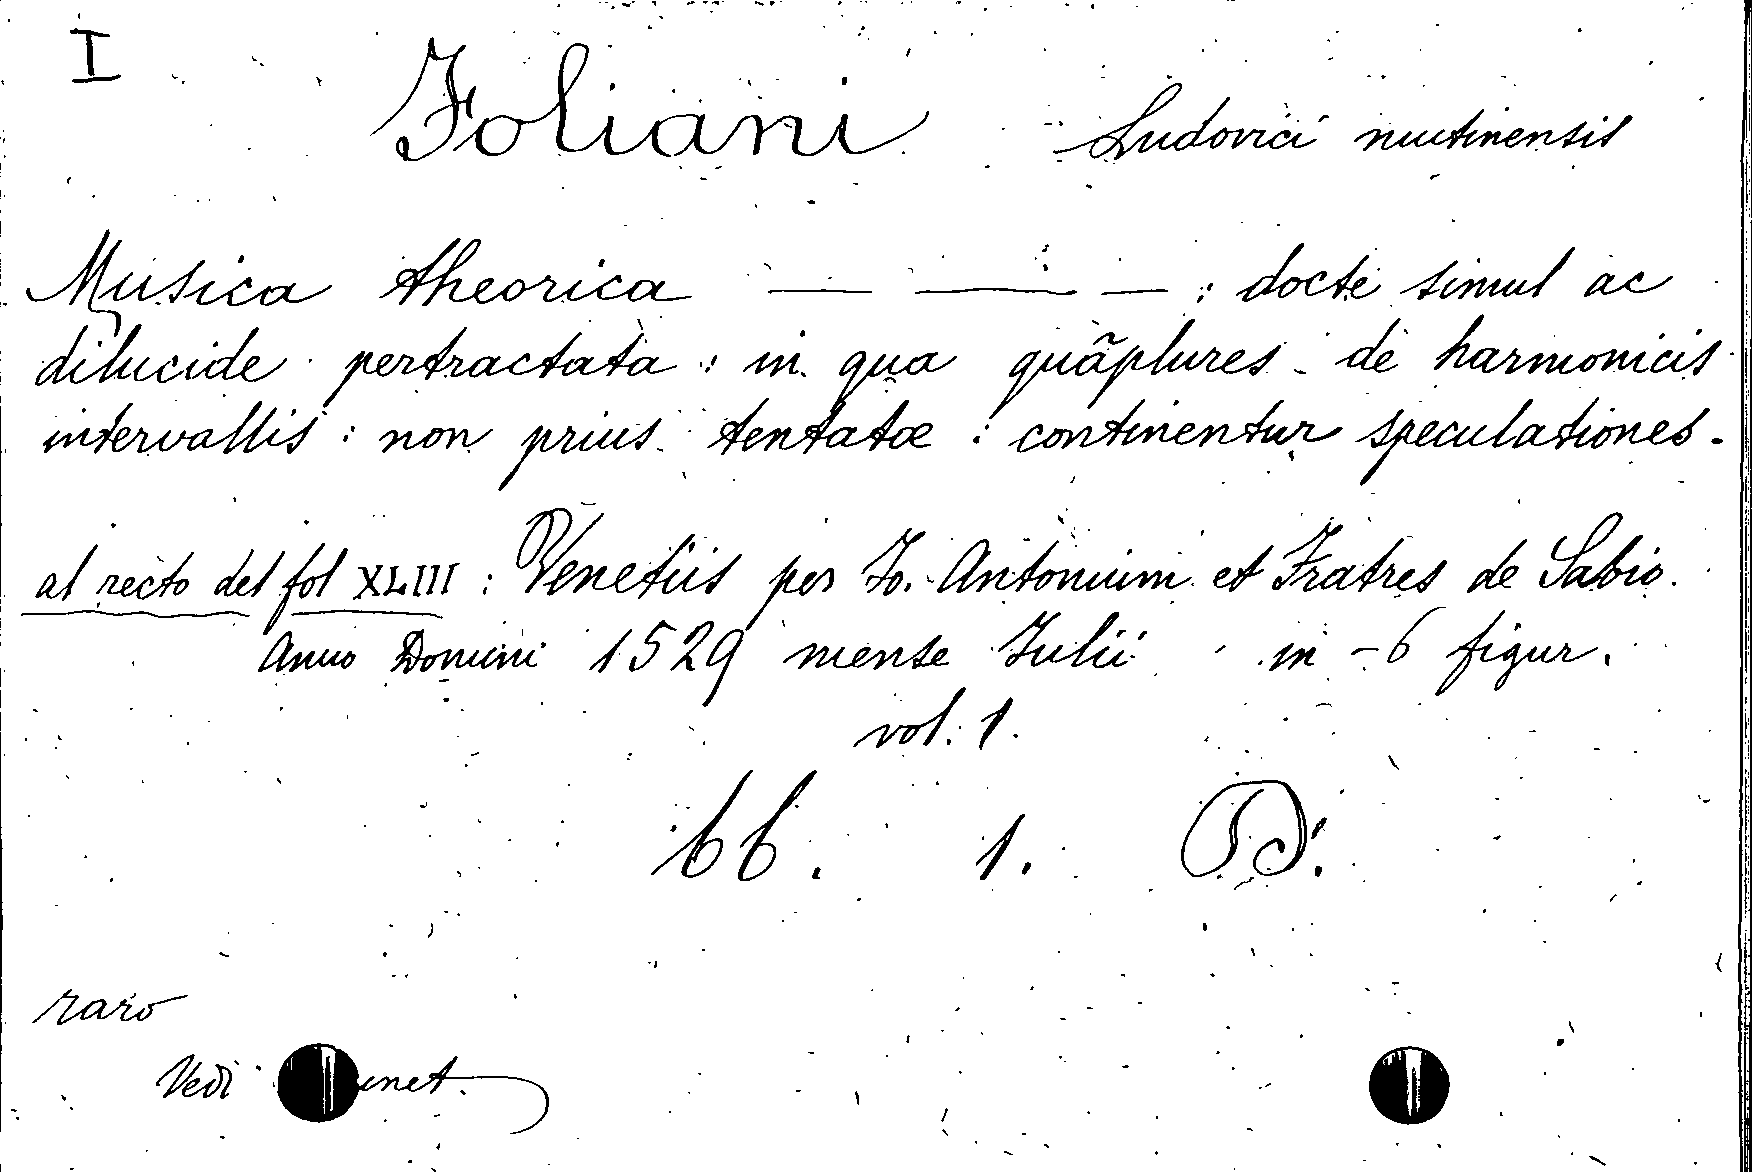 I
Foliani Ludovici mutinensis
Musica theorica — — — : docte simul ac
dilucide pertractata : in qua quãplures de harmonicis
intervallis : non prius tentatæ : continentur speculationes.
al recto del fol XLIII : Venetiis per Io. Antonium et Fratres de Sabio.
Anno Domini 1529 mense Iulii in - 6 figur.
vol. 1.
66. 1.
raro
Vedi